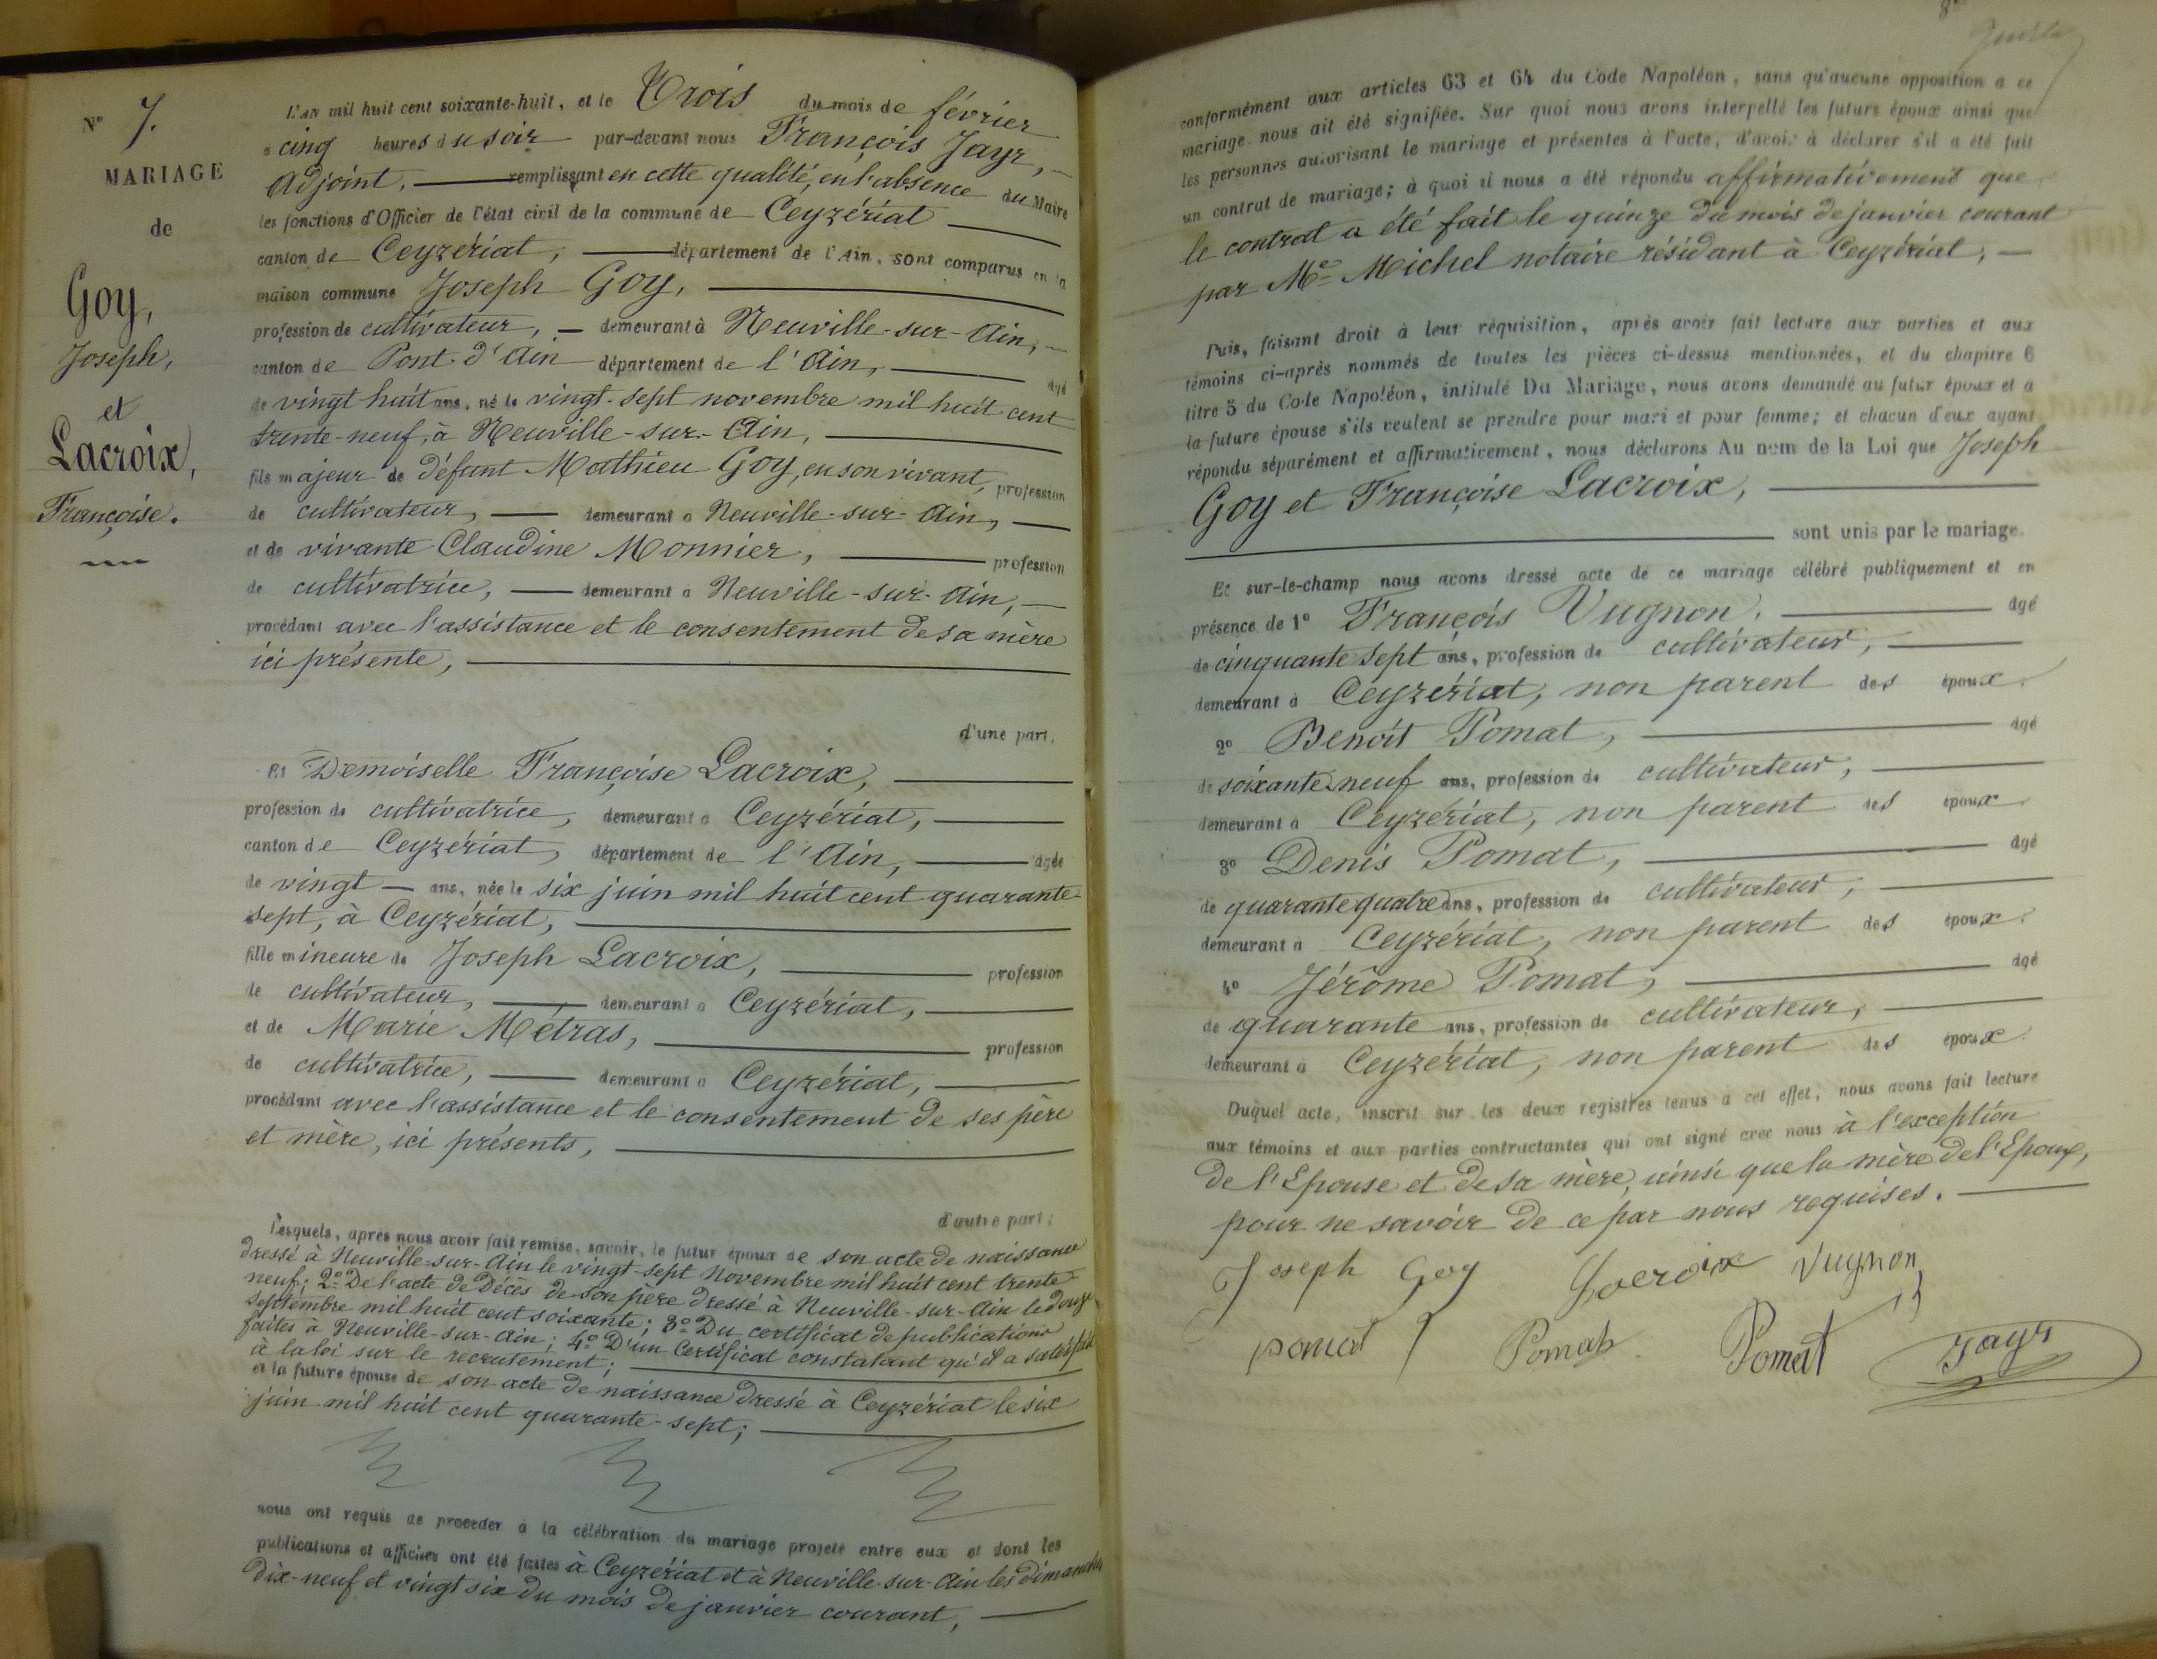 N° 7.
MARIAGE
de
Goy,
Joseph,
et
Lacroix,
Françoise.
L'an mil huit cent soixante-huit, et le Trois du mois de février
a cinq heures du soir par-devant nous François Jayr,
Adjoint, remplissant en cette qualité, en l'absence du Maire
les fonctions d'Officier de l'état civil de la commune de Ceyzériat
canton de Ceyzériat, département de l'Ain, sont comparus en la
maison commune Joseph Goy,
profession de cultivateur, demeurant à Neuville-sur-Ain,
canton de Pont-d'Ain département de l'Ain, âgé
de vingt huit ans, né le vingt-sept novembre mil huit cent
trente-neuf, à Neuville-sur-Ain,
fils majeur de défunt Mathieu Goy, en son vivant, profession
de cultivateur, demeurant à Neuville-sur-Ain,
et de vivante Claudine Monnier, profession
de cultivatrice, demeurant à Neuville-sur-Ain,
procédant avec l'assistance et le consentement de sa mère
ici présente,
d'une part,
Et Demoiselle Françoise Lacroix,
profession de cultivatrice, demeurant à Ceyzériat,
canton de Ceyzériat, département de l'Ain, âgée
de vingt ans, née le six juin mil huit cent quarante-
sept, à Ceyzériat,
fille mineure de Joseph Lacroix, profession
de cultivateur, demeurant à Ceyzériat,
et de Marie Métras, profession
de cultivatrice, demeurant à Ceyzériat,
procédant avec l'assistance et le consentement de ses père
et mère, ici présents,
d'autre part;
Lesquels, après nous avoir fait remise, savoir, le futur époux de son acte de naissance
dressé à Neuville-sur-Ain le vingt-sept Novembre mil huit cent trente-
neuf; 2° De l'acte de Décès de son père dressé à Neuville-sur-Ain le douze
septembre mil huit cent soixante; 3° Du certificat de publications
faites à Neuville-sur-Ain; 4° D'un Certificat constatant qu'il a satisfait
à la loi sur le recrutement;
et la future épouse de son acte de naissance dressé à Ceyzériat le six
juin mil huit cent quarante-sept;
nous ont requis de procéder à la célébration du mariage projeté entre eux et dont les
publications et affiches ont été faites à Ceyzériat et à Neuville-sur-Ain les dimanches
dix-neuf et vingt six du mois de janvier courant,
conformément aux articles 63 et 64 du Code Napoléon, sans qu'aucune opposition a ce
mariage nous ait été signifiée. Sur quoi nous avons interpellé les futurs époux ainsi que
les personnes autorisant le mariage et présentes à l'acte, d'avoir à déclarer s'il a été fait
un contrat de mariage; à quoi il nous a été répondu affirmativement que
le contrat a été fait le quinze du mois de janvier courant
par Me Michel notaire résidant à Ceyzériat,
Puis, faisant droit à leur réquisition, après avoir fait lecture aux parties et aux
témoins ci-après nommés de toutes les pièces ci-dessus mentionnées, et du chapitre 6
titre 5 du Code Napoléon, intitulé Du Mariage, nous avons demandé au futur époux et a
la future épouse s'ils veulent se prendre pour mari et pour femme; et chacun d'eux ayant
répondu séparément et affirmativement, nous déclarons Au nom de la Loi que Joseph
Goy et Françoise Lacroix,
sont unis par le mariage.
Et sur-le-champ nous avons dressé acte de ce mariage célébré publiquement et en
présence de 1° François Vugnon, âgé
de cinquante sept ans, profession de cultivateur,
demeurant à Ceyzériat, non parent des époux.
2° Benoît Pomat, âgé
de soixante neuf ans, profession de cultivateur,
demeurant à Ceyzériat, non parent des époux
3° Denis Pomat, âgé
de quarante quatre ans, profession de cultivateur,
demeurant à Ceyzériat, non parent des époux.
4° Jérôme Pomat, âgé
de quarante ans, profession de cultivateur,
demeurant à Ceyzériat, non parent des époux
Duquel acte, inscrit sur les deux registres tenus à cet effet, nous avons fait lecture
aux témoins et aux parties contractantes qui ont signé avec nous à l'exception
de l'Epouse et de sa mère, ainsi que la mère de l'Epoux,
pour ne savoir de ce par nous requises.
Joseph Goy Lacroix Vugnon
pomat Pomat Pomat Jayr